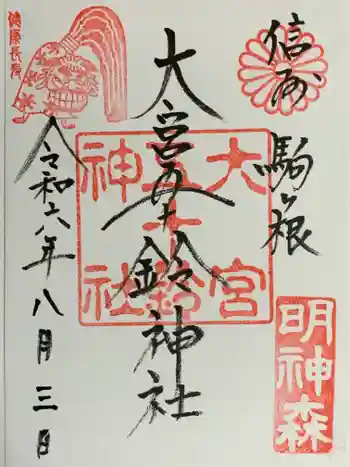 信州 駒ヶ根
大宮五十鈴神社
令和六年八月三日
健康長寿
大宮
五十鈴
神社
明神森